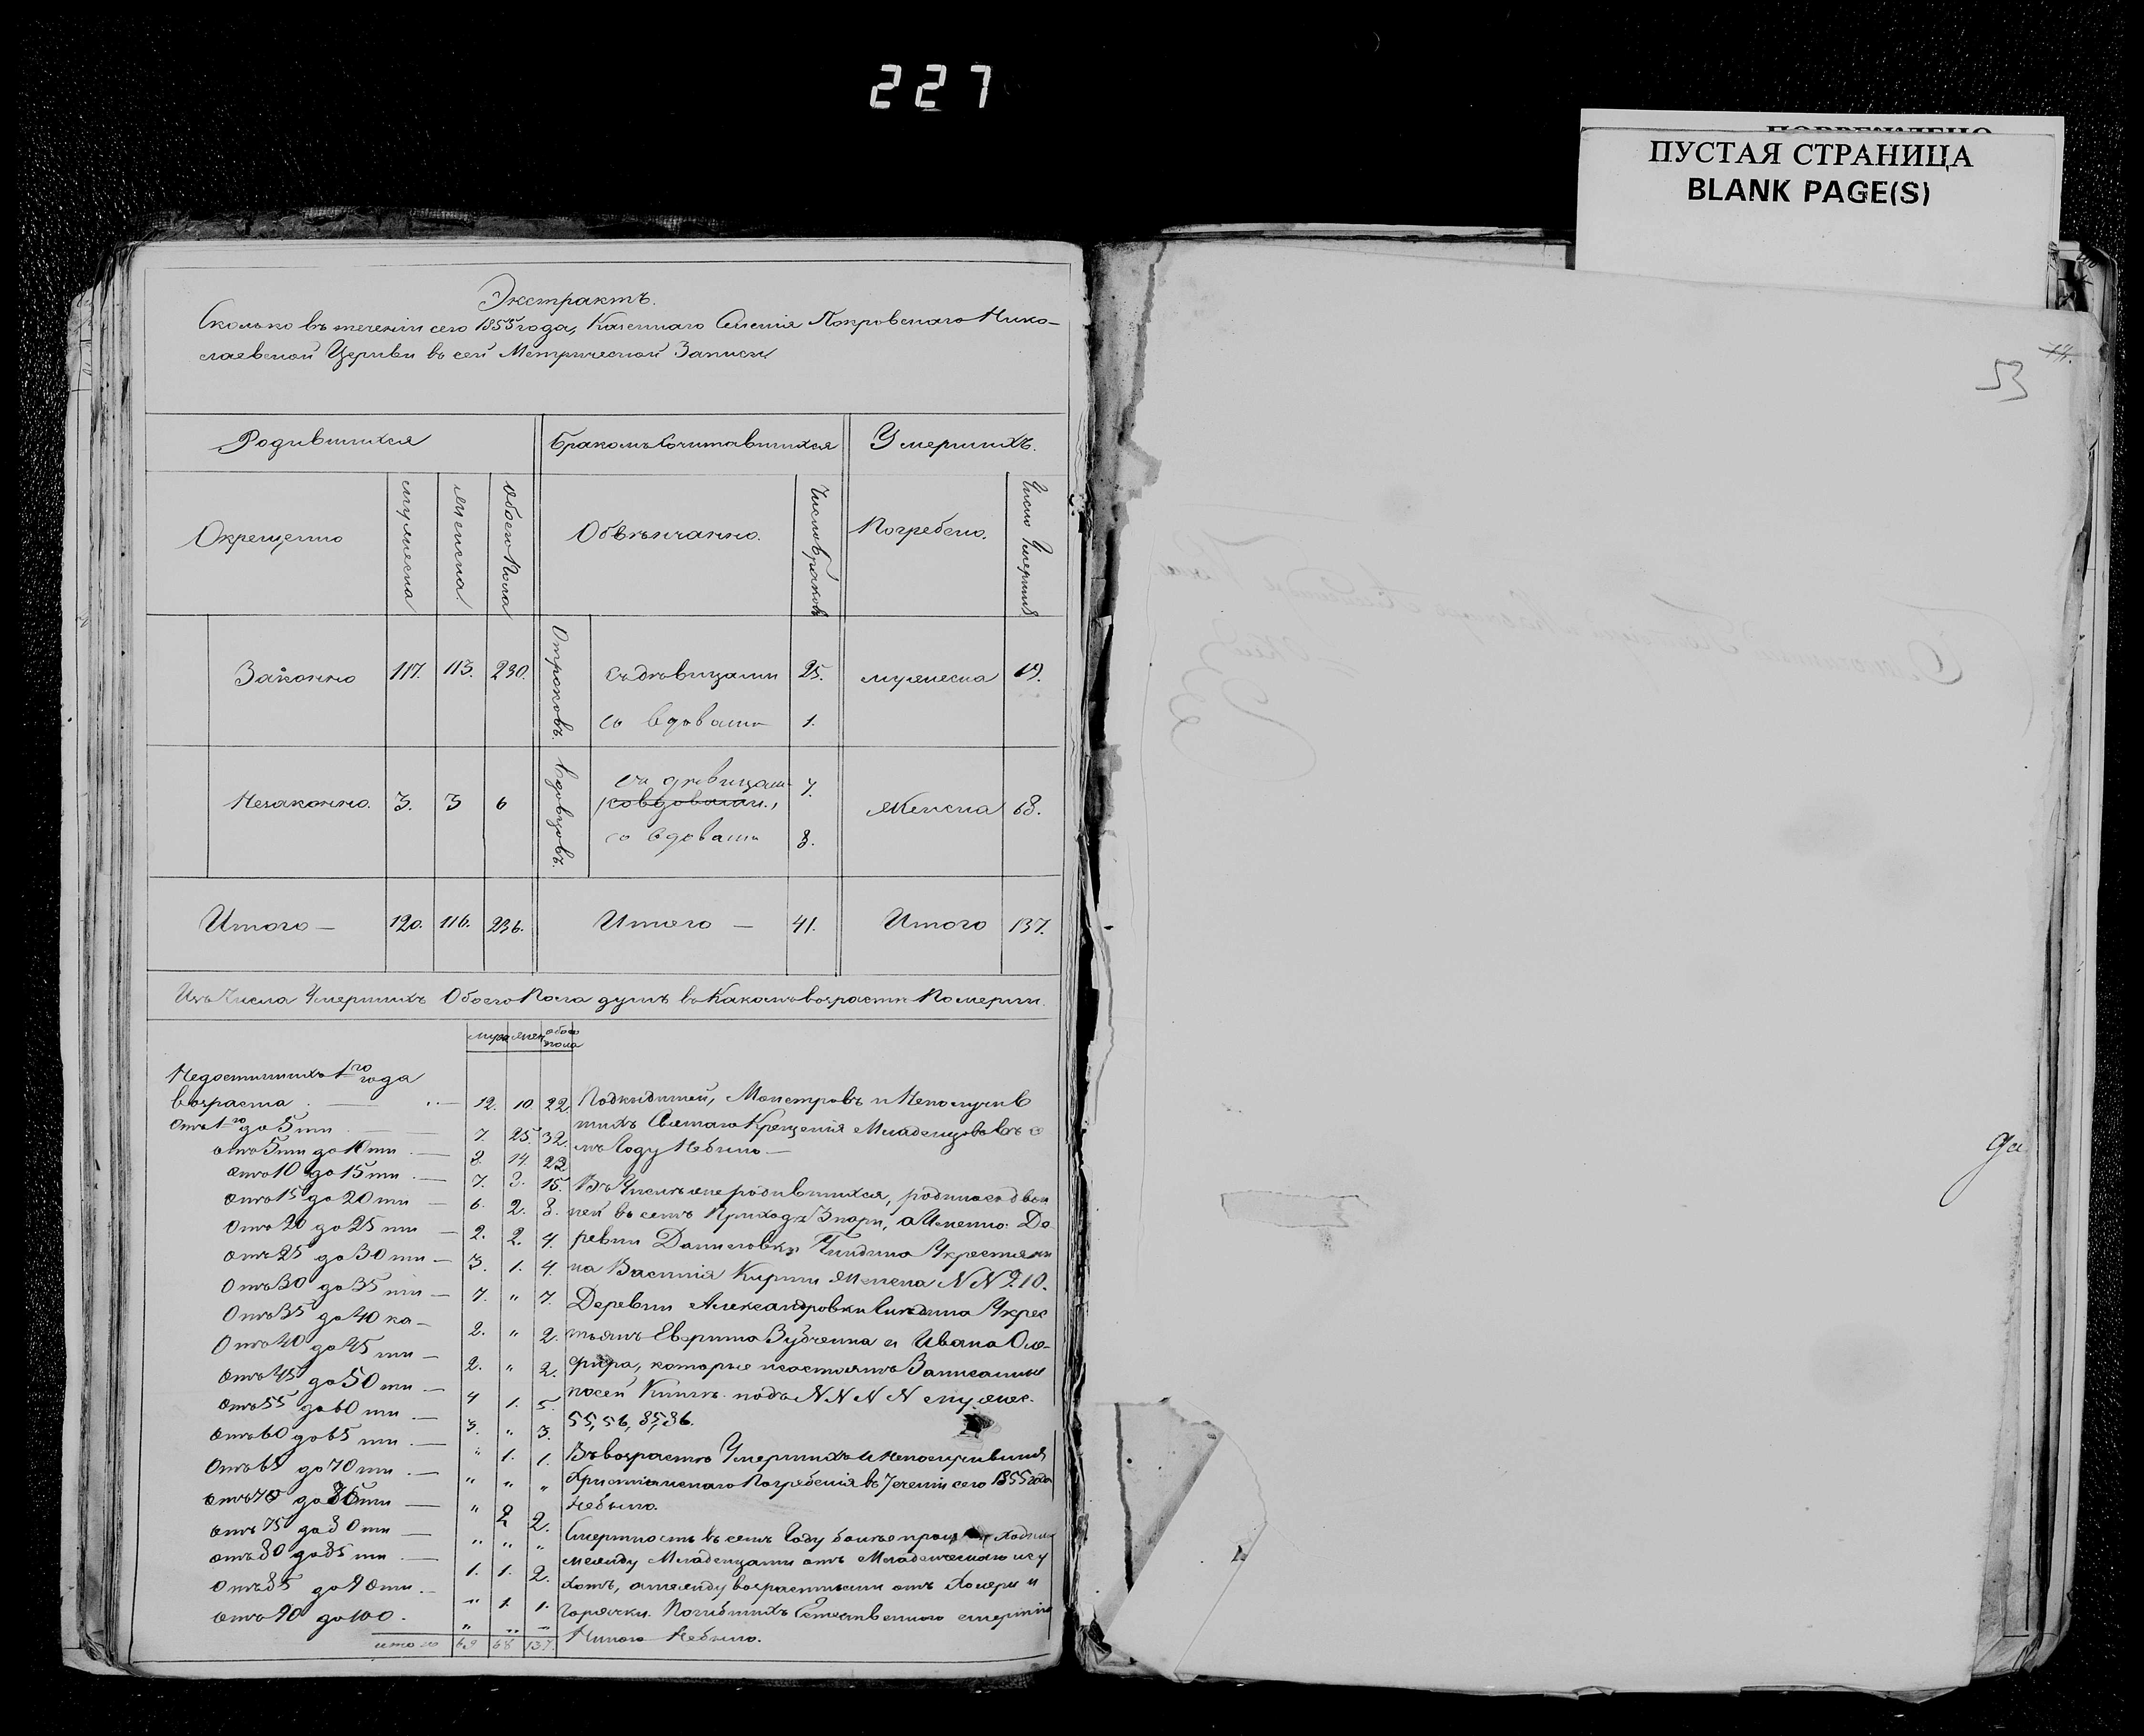 227
ПУСТАЯ СТРАНИЦА
BLANK PAGE(S)
Экстрактъ.
Сколько въ теченіи сего 1855 года, Казеннаго Селенія Покровскаго Нико-
лаевской Церкви въ сей Метрической Записи
Родившихся
Бракомъ Сочитавшихся
Умершихъ.
Окрещенно
мужеска
женска.
обоего Пола
Обвѣнчанно.
Число Браковъ
Погребено.
Число Умершихъ
Законно
117.
113.
230.
Отроковъ.
съ дѣвицами
25.
со вдовами
1.
мужеска
69.
Незаконно.
3.
3
6
вдовцовъ.
съ дѣвицами
7.
со вдовами
со вдовами
8.
Женска
68.
Итого —
120.
116.
236.
Итого —
41.
Итого
137.
Изъ Числа Умершихъ Обоего Пола душъ въ Какомъ возрастѣ Померли.
муже
жен
обоего пола
Недостигшихъ 1го года
возраста — 12. 10. 22.
Отъ 1го до 5ти 7. 25. 32.
отъ 5ти до 10ти — 8. 14. 22
отъ 10 до 15ти — 7. 8. 15.
отъ 15 до 20ти — 6. 2. 8.
Отъ 20 до 25ти — 2. 2. 4.
отъ 25 до 30ти — 3. 1. 4.
Отъ 30 до 35ти — 7. " 7.
Отъ 35 до 40ка — 2. " 2.
Отъ 40 до 45ти — 2. " 2.
отъ 45 до 50ти — 4 1. 5.
отъ 55 до 60ти — 3. " 3.
отъ 60 до 65ти — " 1. 1.
Отъ 65 до 70ти — " " "
отъ 70 до 75ти — " 2 2.
отъ 75 до 80ти — " " "
отъ 80 до 85ти — 1. 1. 2.
Отъ 85 до 90ти — " 1. 1.
отъ 90 до 100. " " "
итого 69 68 137.
Подкидишей, Монстровъ и Неполучив
шихъ Святаго Крещенія Младенцовъ въ се
мъ Году Небыло —
Въ Числѣ же родившихся, родилось двой
ней въ семъ Приходѣ 3 пары, а Именно: Де
ревни Даниловки Гиндина Укрестьяни
на Василія Женска NN 9. 10.
Деревни Александровки Укрес
тьянъ и Ивана Оле-
фира, которые и состоятъ Записанные
посей Книгѣ подъ NNNN мужес.
55, 56, 85, 86.
Въ возрастѣ Умершихъ и Неполучившихъ
Христіанскаго Погребенія въ Теченіи сего 1855 года
Небыло.
Смертность въ семъ Году болѣе происходила
между Младенцами отъ Младенческаго ису
хотъ, а между возрастными отъ Холеры и
Горячки. Погибшихъ Естественною смертію
Никого Небыло.
53
14.
да